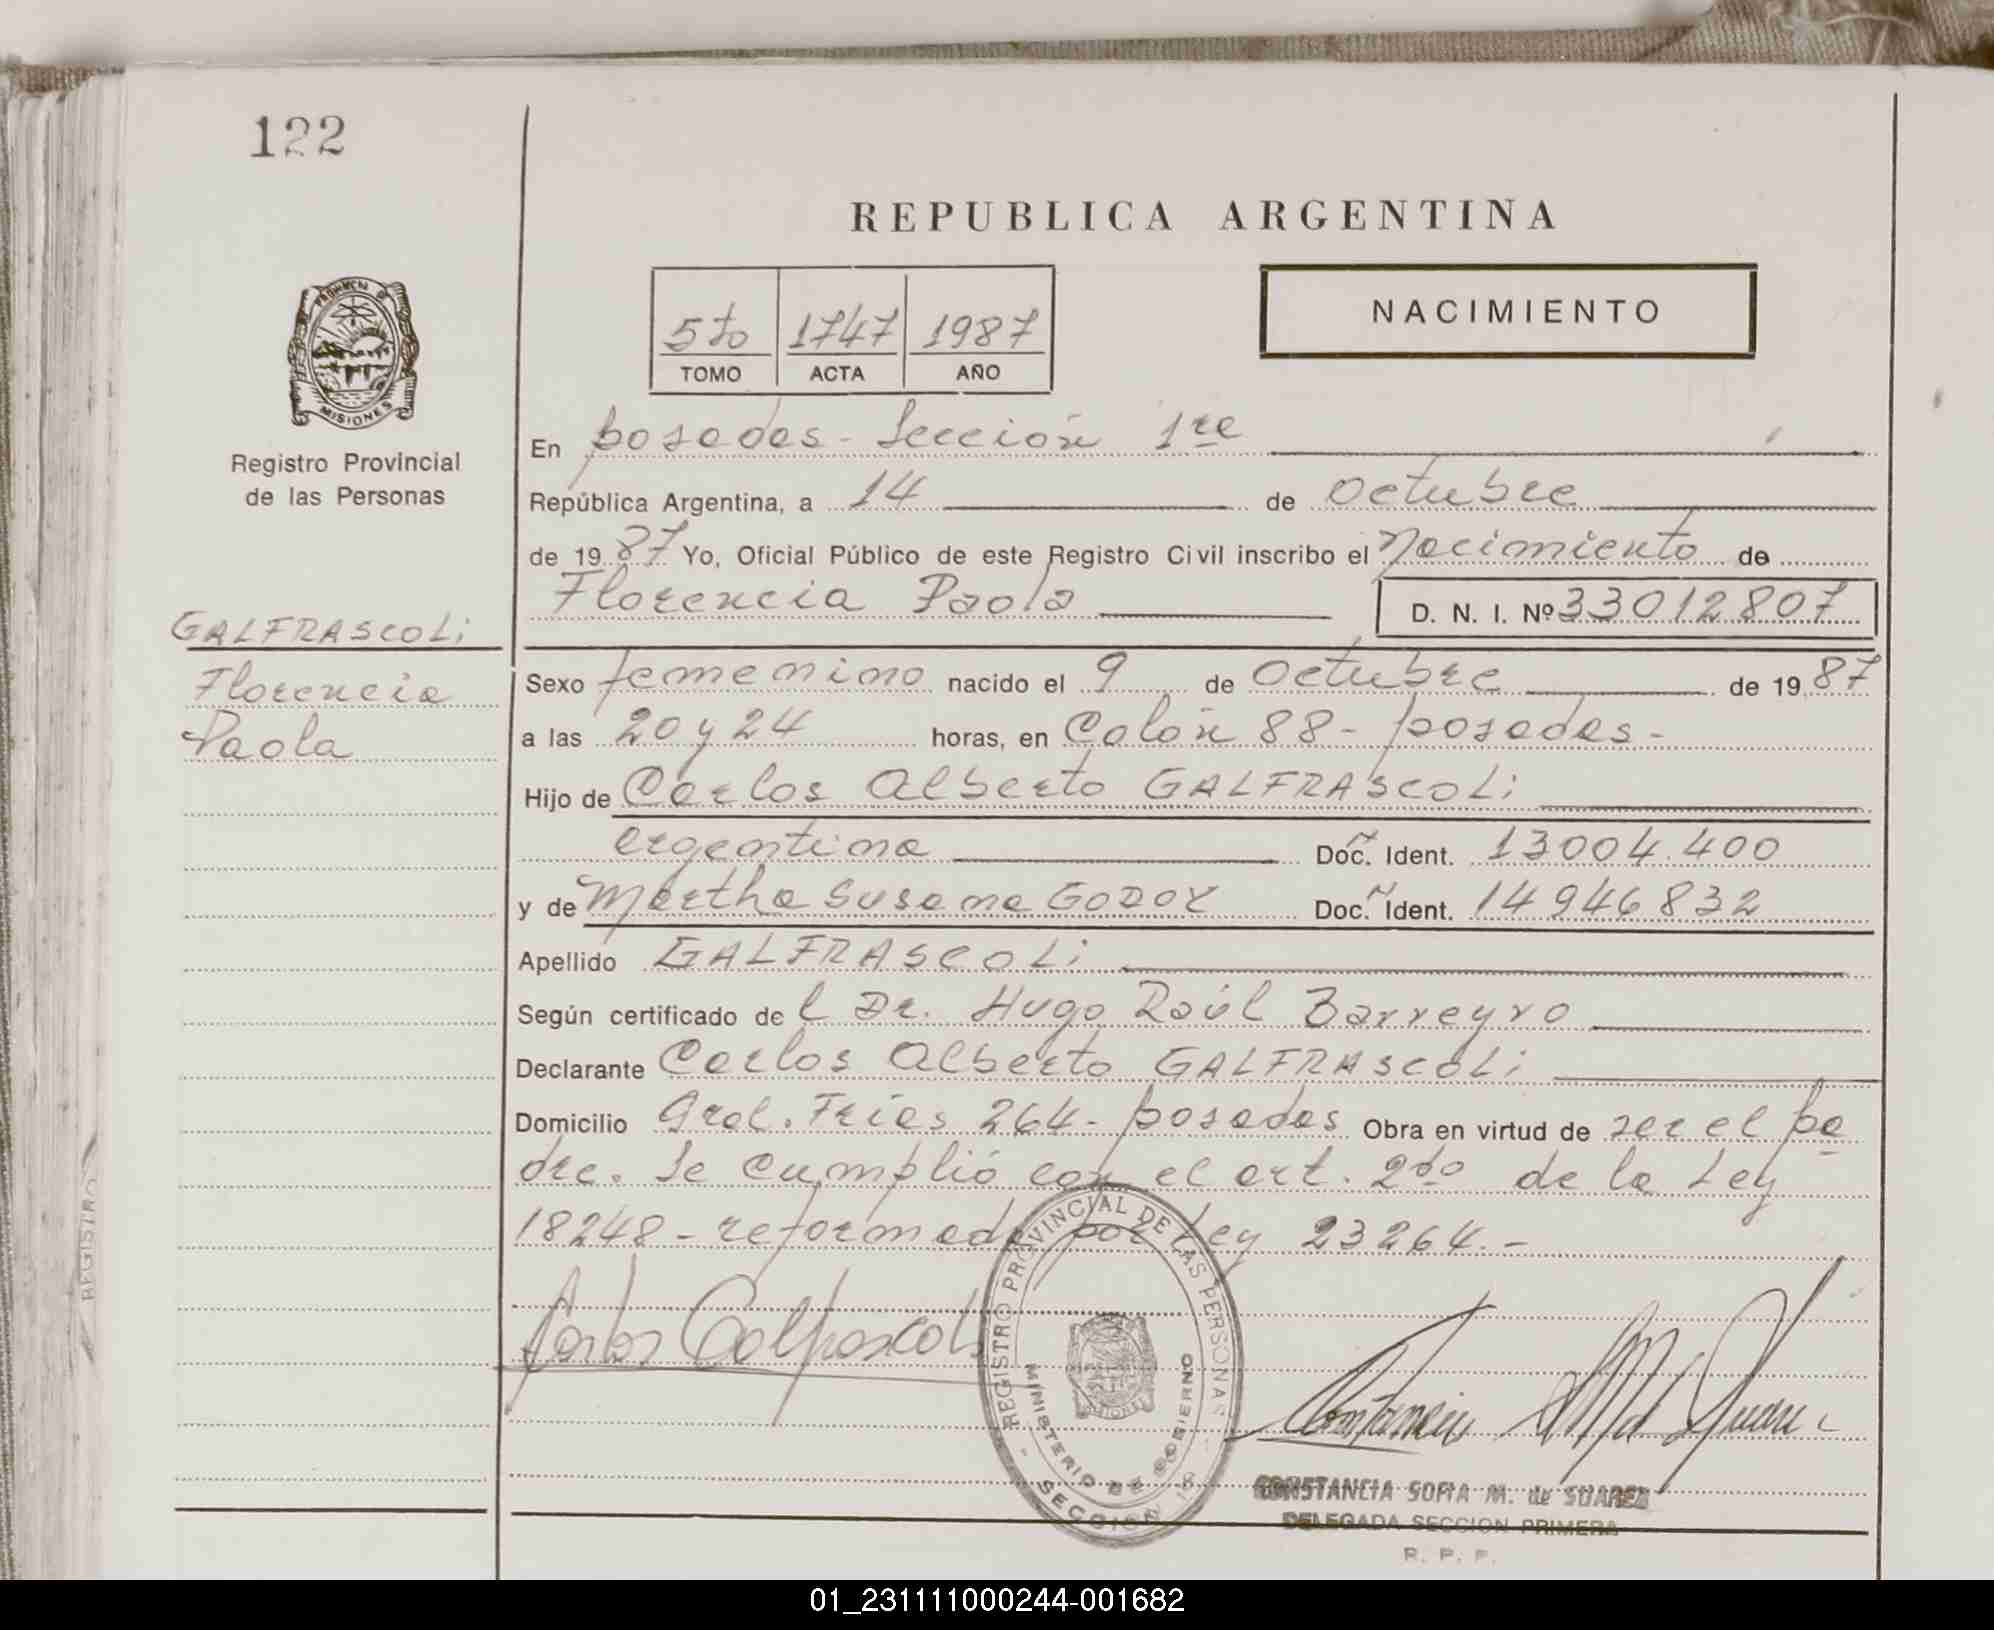 122
REPUBLICA ARGENTINA
NACIMIENTO
5to 1747 1987
TOMO ACTA AÑO
PROVINCIA DE
MISIONES
Registro Provincial
de las Personas
En posadas - Sección 1ra
República Argentina, a 14 de octubre
de 1987 Yo, Oficial Público de este Registro Civil inscribo el nacimiento de
Florencia Paola D. N. I. Nº 33012807
GALFRASCOLi
Florencia
Paola
Sexo femenino nacido el 9 de octubre de 1987
a las 20 y 24 horas, en Colón 88 - posadas -
Hijo de Carlos Alberto GALFRASCOLi
argentina Doc. Ident. 13004.400
y de Martha Susana GODOY Doc. Ident. 14946832
Apellido GALFRASCOLi
Según certificado de l Dr. Hugo Raúl Barreyro
Declarante Carlos Alberto GALFRASCOLi
Domicilio Gral. Frías 264 - posadas Obra en virtud de ser el pa
dre. Se cumplió con el art. 2do de la Ley
18248 - reformada por Ley 23264. -
Carlos Galfrascoli
REGISTRO PROVINCIAL DE LAS PERSONAS
MINISTERIO DE GOBIERNO
SECCION 1ª
CONSTANCIA SOFIA M. de SUAREZ
DELEGADA SECCION PRIMERA
R. P. P.
REGISTRO
01_231111000244-001682